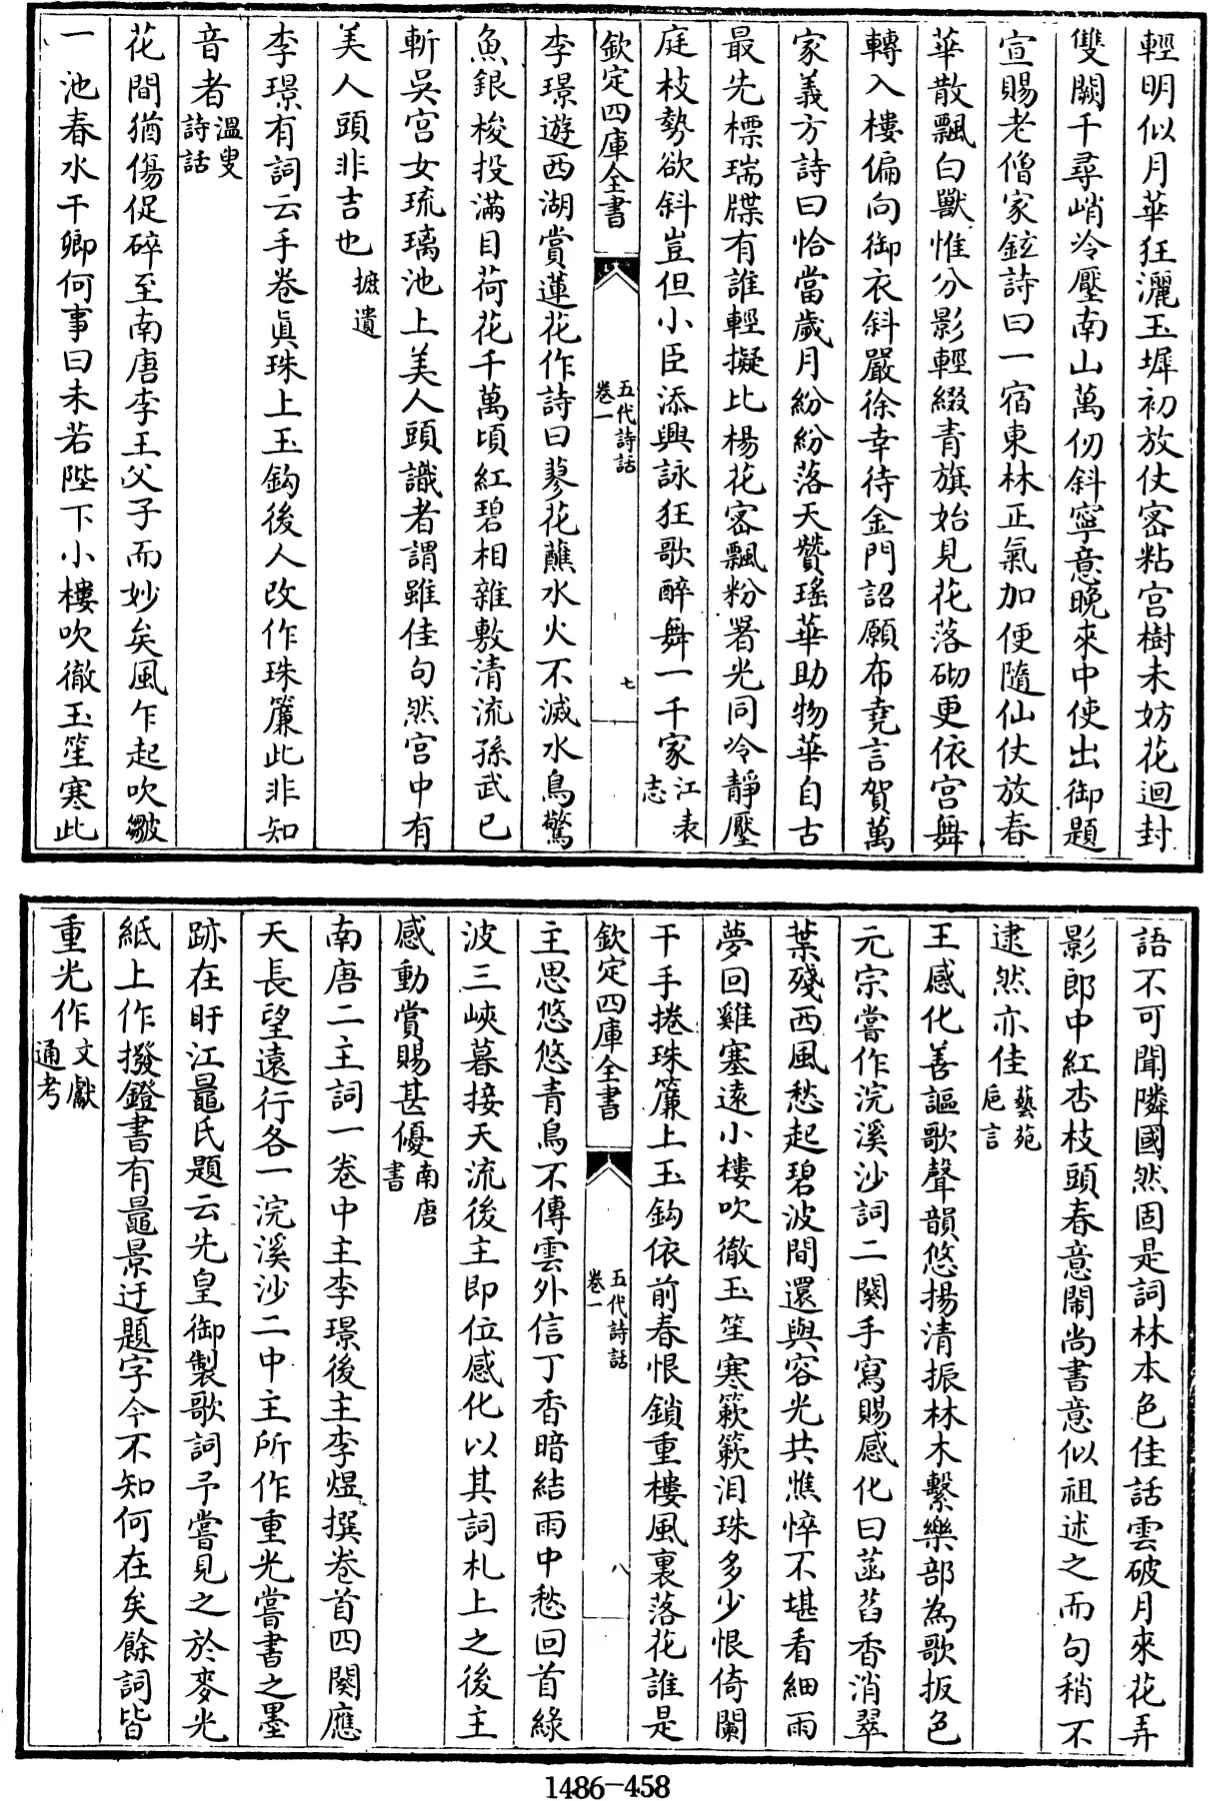 輕明似月華狂灑玉墀初放仗密粘宫樹未妨花迴封
雙闕千尋峭冷壓南山萬仞斜寧意晚來中使出御題
宣賜老僧家鉉詩曰一宿東林正氣加便隨仙仗放春
華散飄白獸惟分影輕綴青旗始見花落砌更依宫舞
轉入樓偏向御衣斜嚴徐幸待金門詔願布堯言賀萬
家義方詩曰恰當歲月紛紛落天贊瑤華助物華自古
最先標瑞牒有誰輕擬比楊花密飄粉署光同冷靜壓
庭枝勢欲斜豈但小臣添興詠狂歌醉舞一千家江表
志
欽定四庫全書
五代詩話
卷一
七
李璟遊西湖賞蓮花作詩曰蓼花蘸水火不滅水鳥驚
魚銀梭投滿目荷花千萬頃紅碧相雜敷清流孫武已
斬吳宫女琉璃池上美人頭識者謂雖佳句然宫中有
美人頭非吉也摭遺
李璟有詞云手卷眞珠上玉鈎後人改作珠簾此非知
音者溫叟
詩話
花間猶傷促碎至南唐李王父子而妙矣風乍起吹皺
一池春水干卿何事曰未若陛下小樓吹徹玉笙寒此
語不可聞隣國然固是詞林本色佳話雲破月來花弄
影郎中紅杏枝頭春意鬧尚書意似祖述之而句稍不
逮然亦佳藝苑
巵言
王感化善謳歌聲韻悠揚清振林木繫樂部為歌板色
元宗嘗作浣溪沙詞二闋手寫賜感化曰菡萏香消翠
葉殘西風愁起碧波間還與容光共憔悴不堪看細雨
夢回雞塞遠小樓吹徹玉笙寒簌簌泪珠多少恨倚闌
干手捲珠簾上玉鈎依前春恨鎖重樓風裏落花誰是
欽定四庫全書
五代詩話
卷一
八
主思悠悠青鳥不傳雲外信丁香暗結雨中愁回首綠
波三峽暮接天流後主即位感化以其詞札上之後主
感動賞賜甚優南唐
書
南唐二主詞一卷中主李璟後主李煜撰卷首四闋應
天長望遠行各一浣溪沙二中主所作重光嘗書之墨
跡在盱江鼂氏題云先皇御製歌詞予嘗見之於麥光
紙上作撥鐙書有鼂景迂題字今不知何在矣餘詞皆
重光作文獻
通考
1486-458